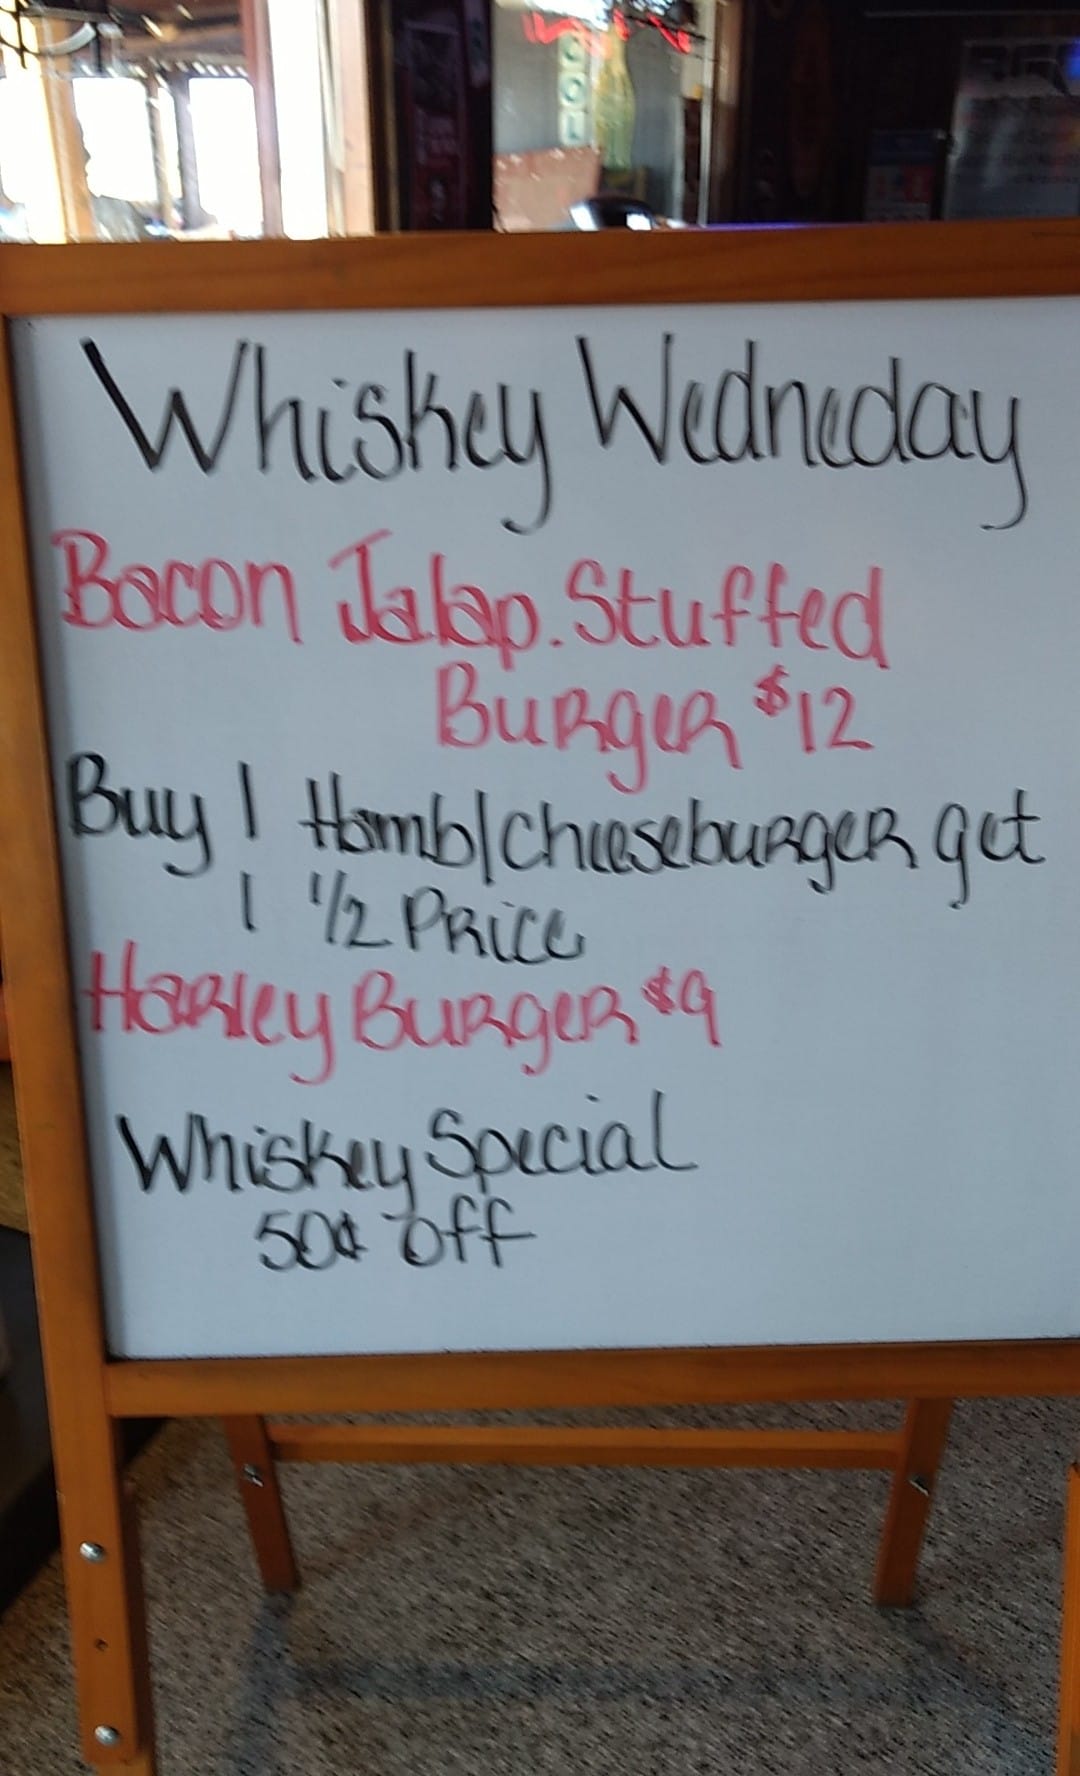 COOL
Whiskey Wedneday
Bacon Jalap. Stuffed
Burger $12
Buy 1 Hamb/cheeseburger get
1 1/2 Price
Harley Burger $9
Whiskey Special
50¢ off